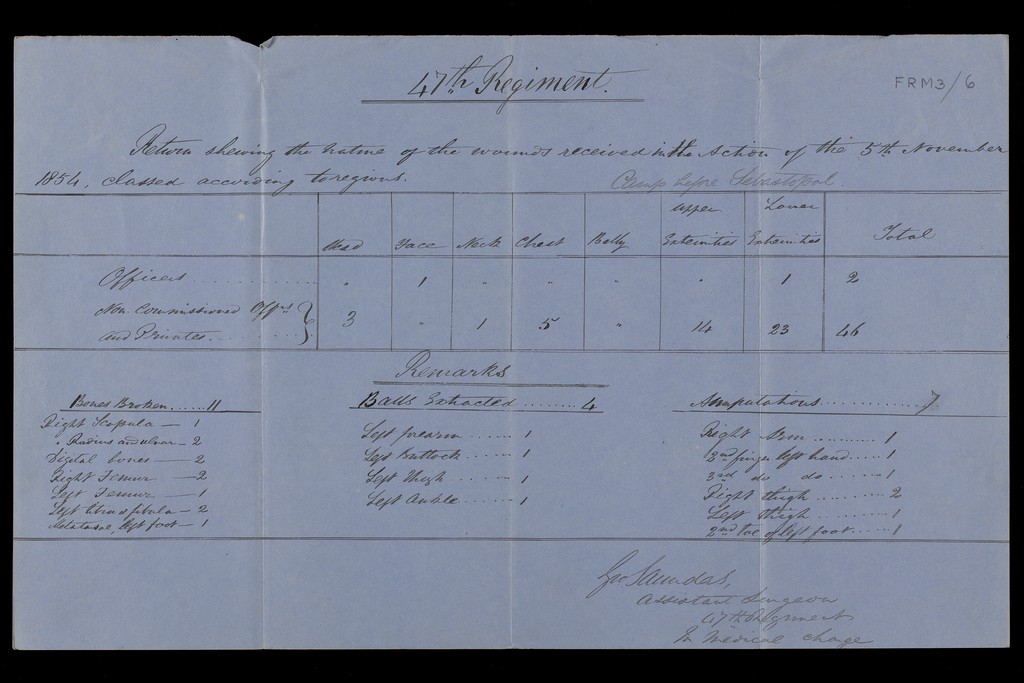 47th Regiment.
FRM3/6
Return shewing the nature of the wounds received in the Action of the 5th November
1854, classed according to regions.
Camp before Sebastopol.
Head Face Neck Chest Belly Upper Extremities Lower Extremities Total
Officers . . . . . . . . . . " 1 " " " " 1 2
Non Commissioned Offrs
and Privates. . . . . . . } 3 " 1 5 " 14 23 46
Remarks
Bones Broken ..... 11
Right Scapula — 1
" Radius and ulnar — 2
Digital bones — 2
Right Femur — 2
Left Femur — 1
Left tibia & fibula — 2
Metatarsal, left foot — 1
Balls Extracted ......... 4
Left forearm ...... 1
Left Buttock ...... 1
Left thigh ...... 1
Left Ankle ...... 1
Amputations ............... 7
Right Arm .......... 1
2nd finger left hand ..... 1
3rd do do ..... 1
Right thigh ....... 2
Left thigh ......... 1
2nd toe of left foot ...... 1
Geo Saunders,
Assistant Surgeon
47th Regiment
In Medical charge